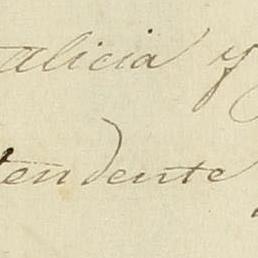 alicia y
tendente